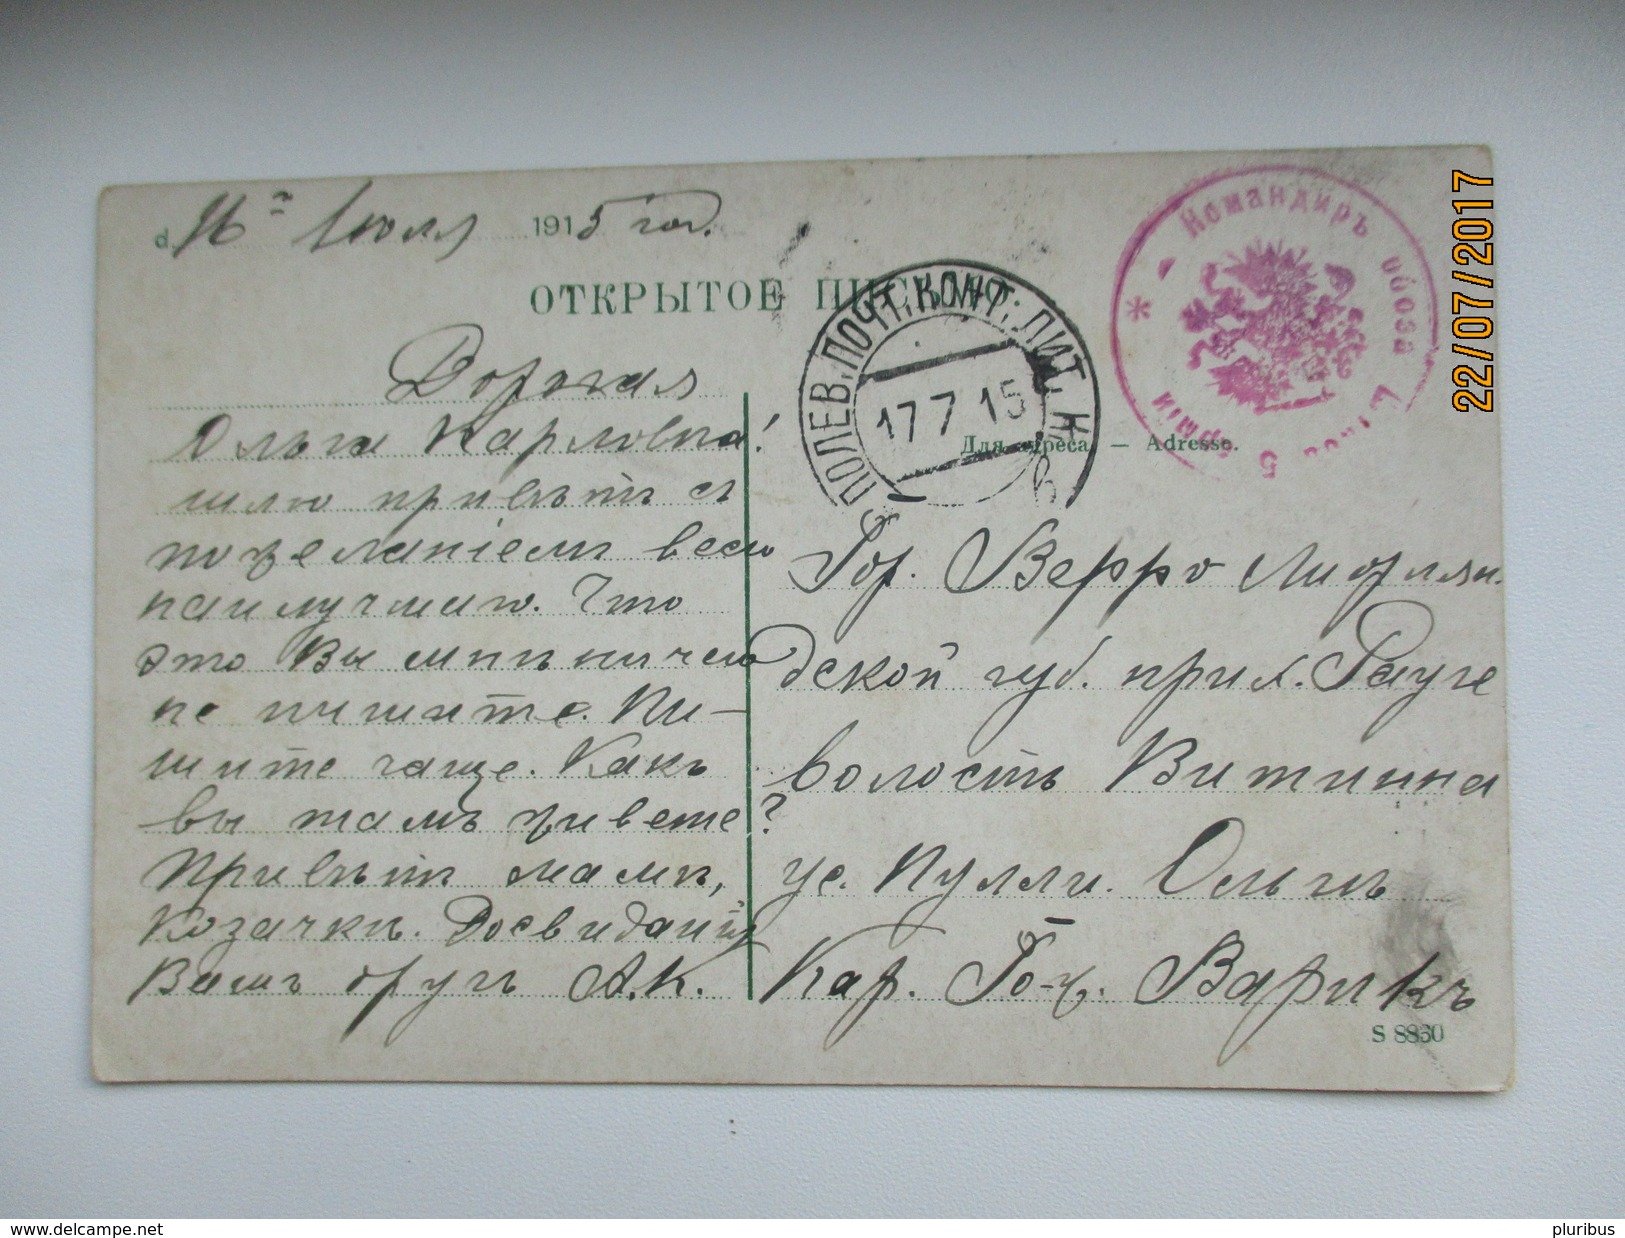 d. 16го Июля 1915 год.
ОТКРЫТОЕ ПИСЬМО.
Дорогая
Ольга Карловна!
шлю привѣтъ съ
пожеланіемъ всего
наилучшаго. Что
это Вы мнѣ ничего
не пишите. Пи-
шите чаще. Какъ
вы тамъ живете?
Привѣтъ мамѣ,
козачкѣ. Досвиданія
Вашъ другъ А.К.
ПОЛЕВ. ПОЧТ. КОНТ. ЛИТ. Н
17 7 15
б
Командиръ обоза
5 арміи
Для адреса — Adresse.
Гор. Верро Лифлян.
дской губ. прих. Рауге
волость Витинна
ус. Пулли. Ольгѣ
Кар. Го-ж. Варикъ
S 8860
22/07/2017
www.delcampe.net
pluribus